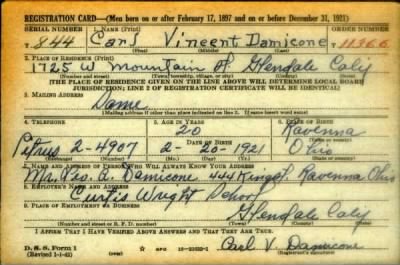 REGISTRATION CARD—(Men born on or after February 17, 1897 and on or before December 31, 1921)
SERIAL NUMBER 1. NAME (Print) ORDER NUMBER
T 844 Carl Vincent Damicone 11366
(First) (Middle) (Last)
2. PLACE OF RESIDENCE (Print)
1725 W mountain Glendale Calif
(Number and street) (Town, township, village, or city) (County) (State)
[THE PLACE OF RESIDENCE GIVEN ON THE LINE ABOVE WILL DETERMINE LOCAL BOARD
JURISDICTION; LINE 2 OF REGISTRATION CERTIFICATE WILL BE IDENTICAL]
3. MAILING ADDRESS
Same
[Mailing address if other than place indicated on line 2. If same insert word same]
4. TELEPHONE 5. AGE IN YEARS
20 Ravenna
DATE OF BIRTH
2-4907 2-20-1921 Ohio
(Exchange) (Number) (Mo.) (Day) (Yr.)
7. NAME AND ADDRESS OF PERSON WHO WILL ALWAYS KNOW YOUR ADDRESS
Mr. Leo. Damicone 444 King st Ravenna Ohio
8. EMPLOYER'S NAME AND ADDRESS
Curtis Wright School
9. PLACE OF EMPLOYMENT OR BUSINESS
Glendale Calif
(Number and street or R. F. D. number) (Town) (County) (State)
I AFFIRM THAT I HAVE VERIFIED ABOVE ANSWERS AND THAT THEY ARE TRUE.
D. S. S. Form 1
(Revised 1-1-42) GPO Carl V. Damicone
(Registrant's signature)